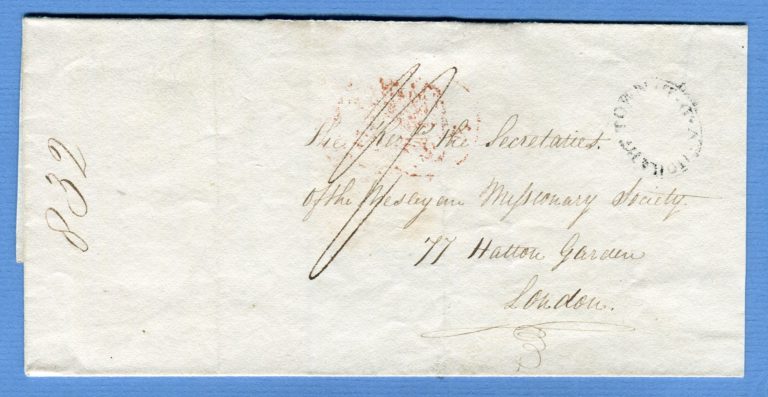 832
The Revd. the Secretaries
of the Wesleyan Missionary Society
77 Hatton Garden
London.